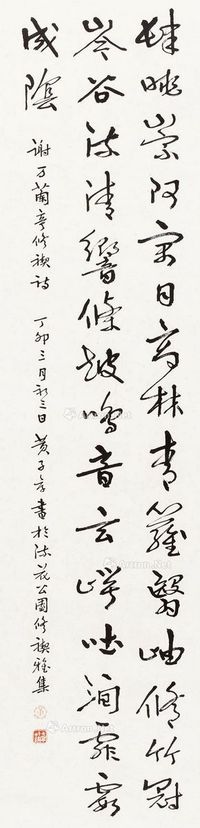 肆眺崇阿寓目高林青蘿翳岫脩竹冠
岑谷流清響條鼓鳴音玄崿吐潤霏霧
成陰
謝万蘭亭修禊詩 丁卯三月初三日黄子厚書於流花公園修禊雅集
Artron.Net